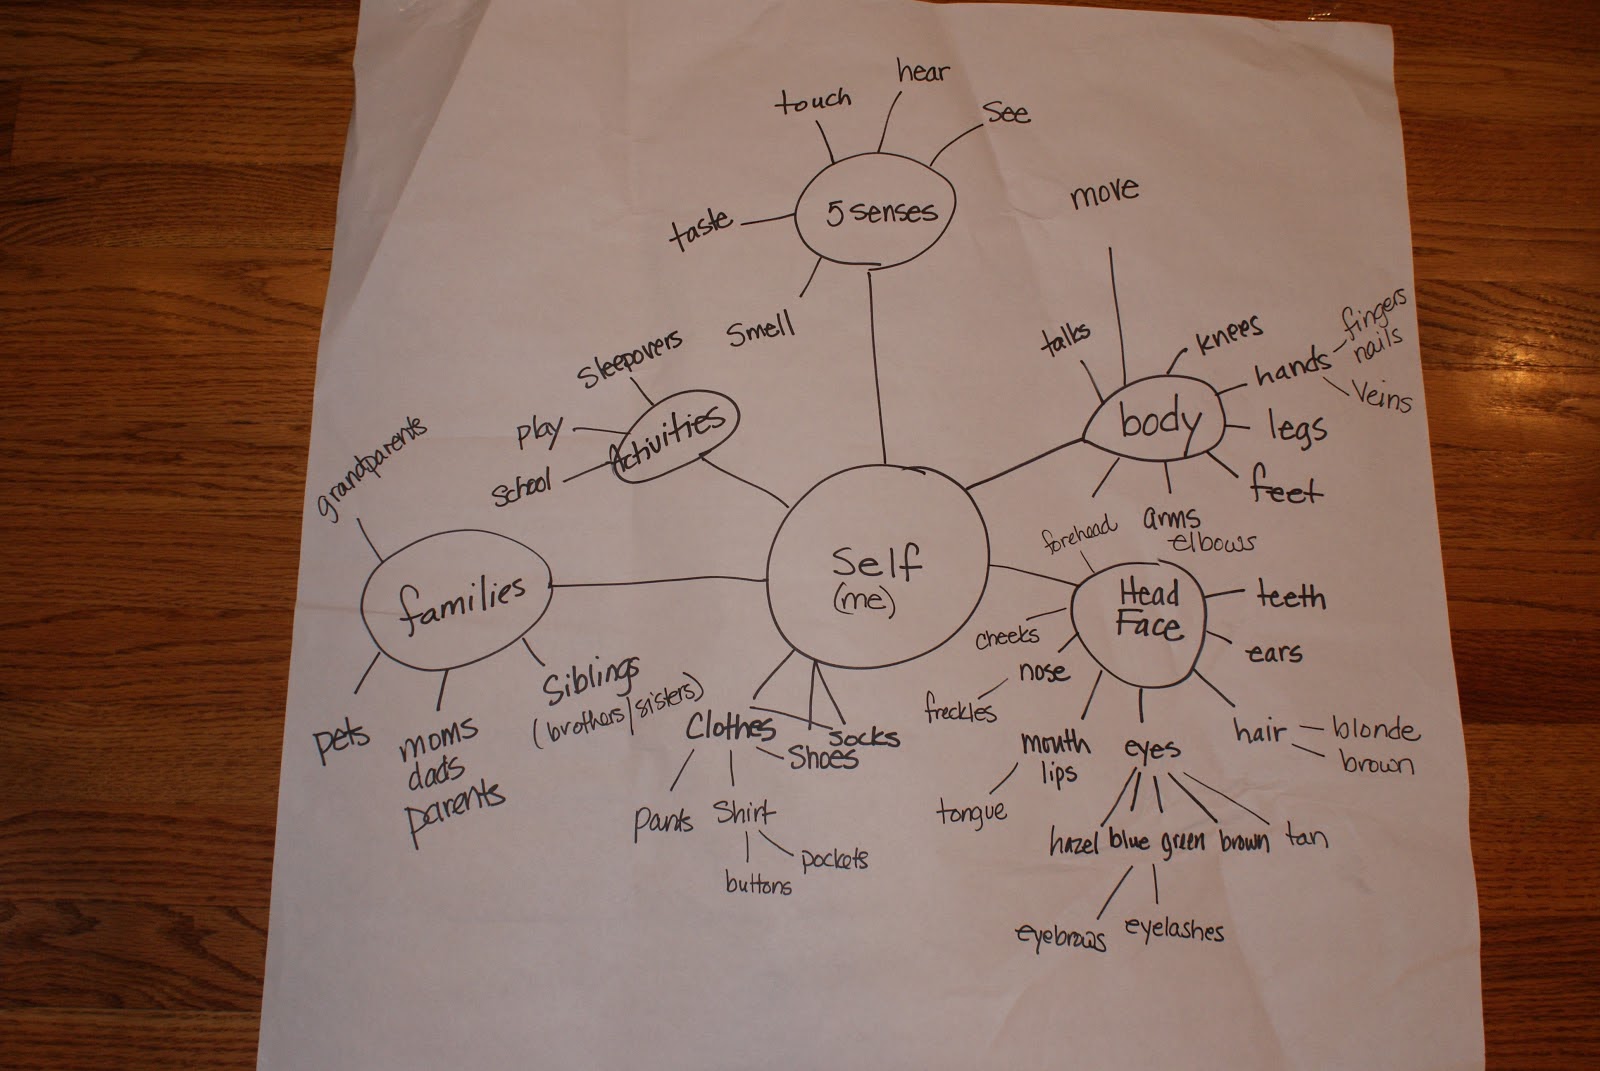 hear
touch
See
5 senses
taste
smell
move
talks
knees
hands
fingers
nails
Veins
body
legs
feet
arms
elbows
sleepovers
play
school
Activities
grandparents
families
pets
moms
dads
parents
Siblings
(brothers/sisters)
Self
(me)
Clothes
socks
Shoes
pants
Shirt
pockets
buttons
forehead
Head
Face
teeth
ears
cheeks
nose
freckles
mouth
lips
tongue
eyes
hair
blonde
brown
hazel blue green brown tan
eyebrows
eyelashes